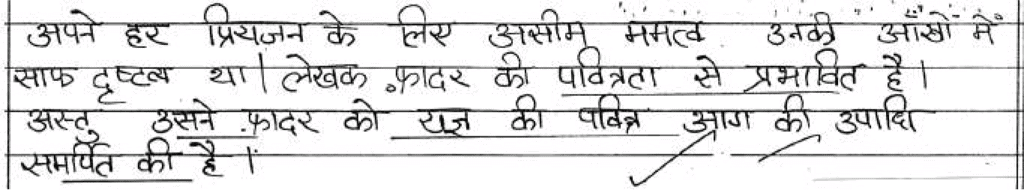 अपने हर प्रियजन के लिए असीम ममत्व उनकी आँखों में
साफ दृष्टव्य था। लेखक फ़ादर की पवित्रता से प्रभावित है।
अस्तु उसने फ़ादर को यज्ञ की पवित्र आग की उपाधि
समर्पित की है।